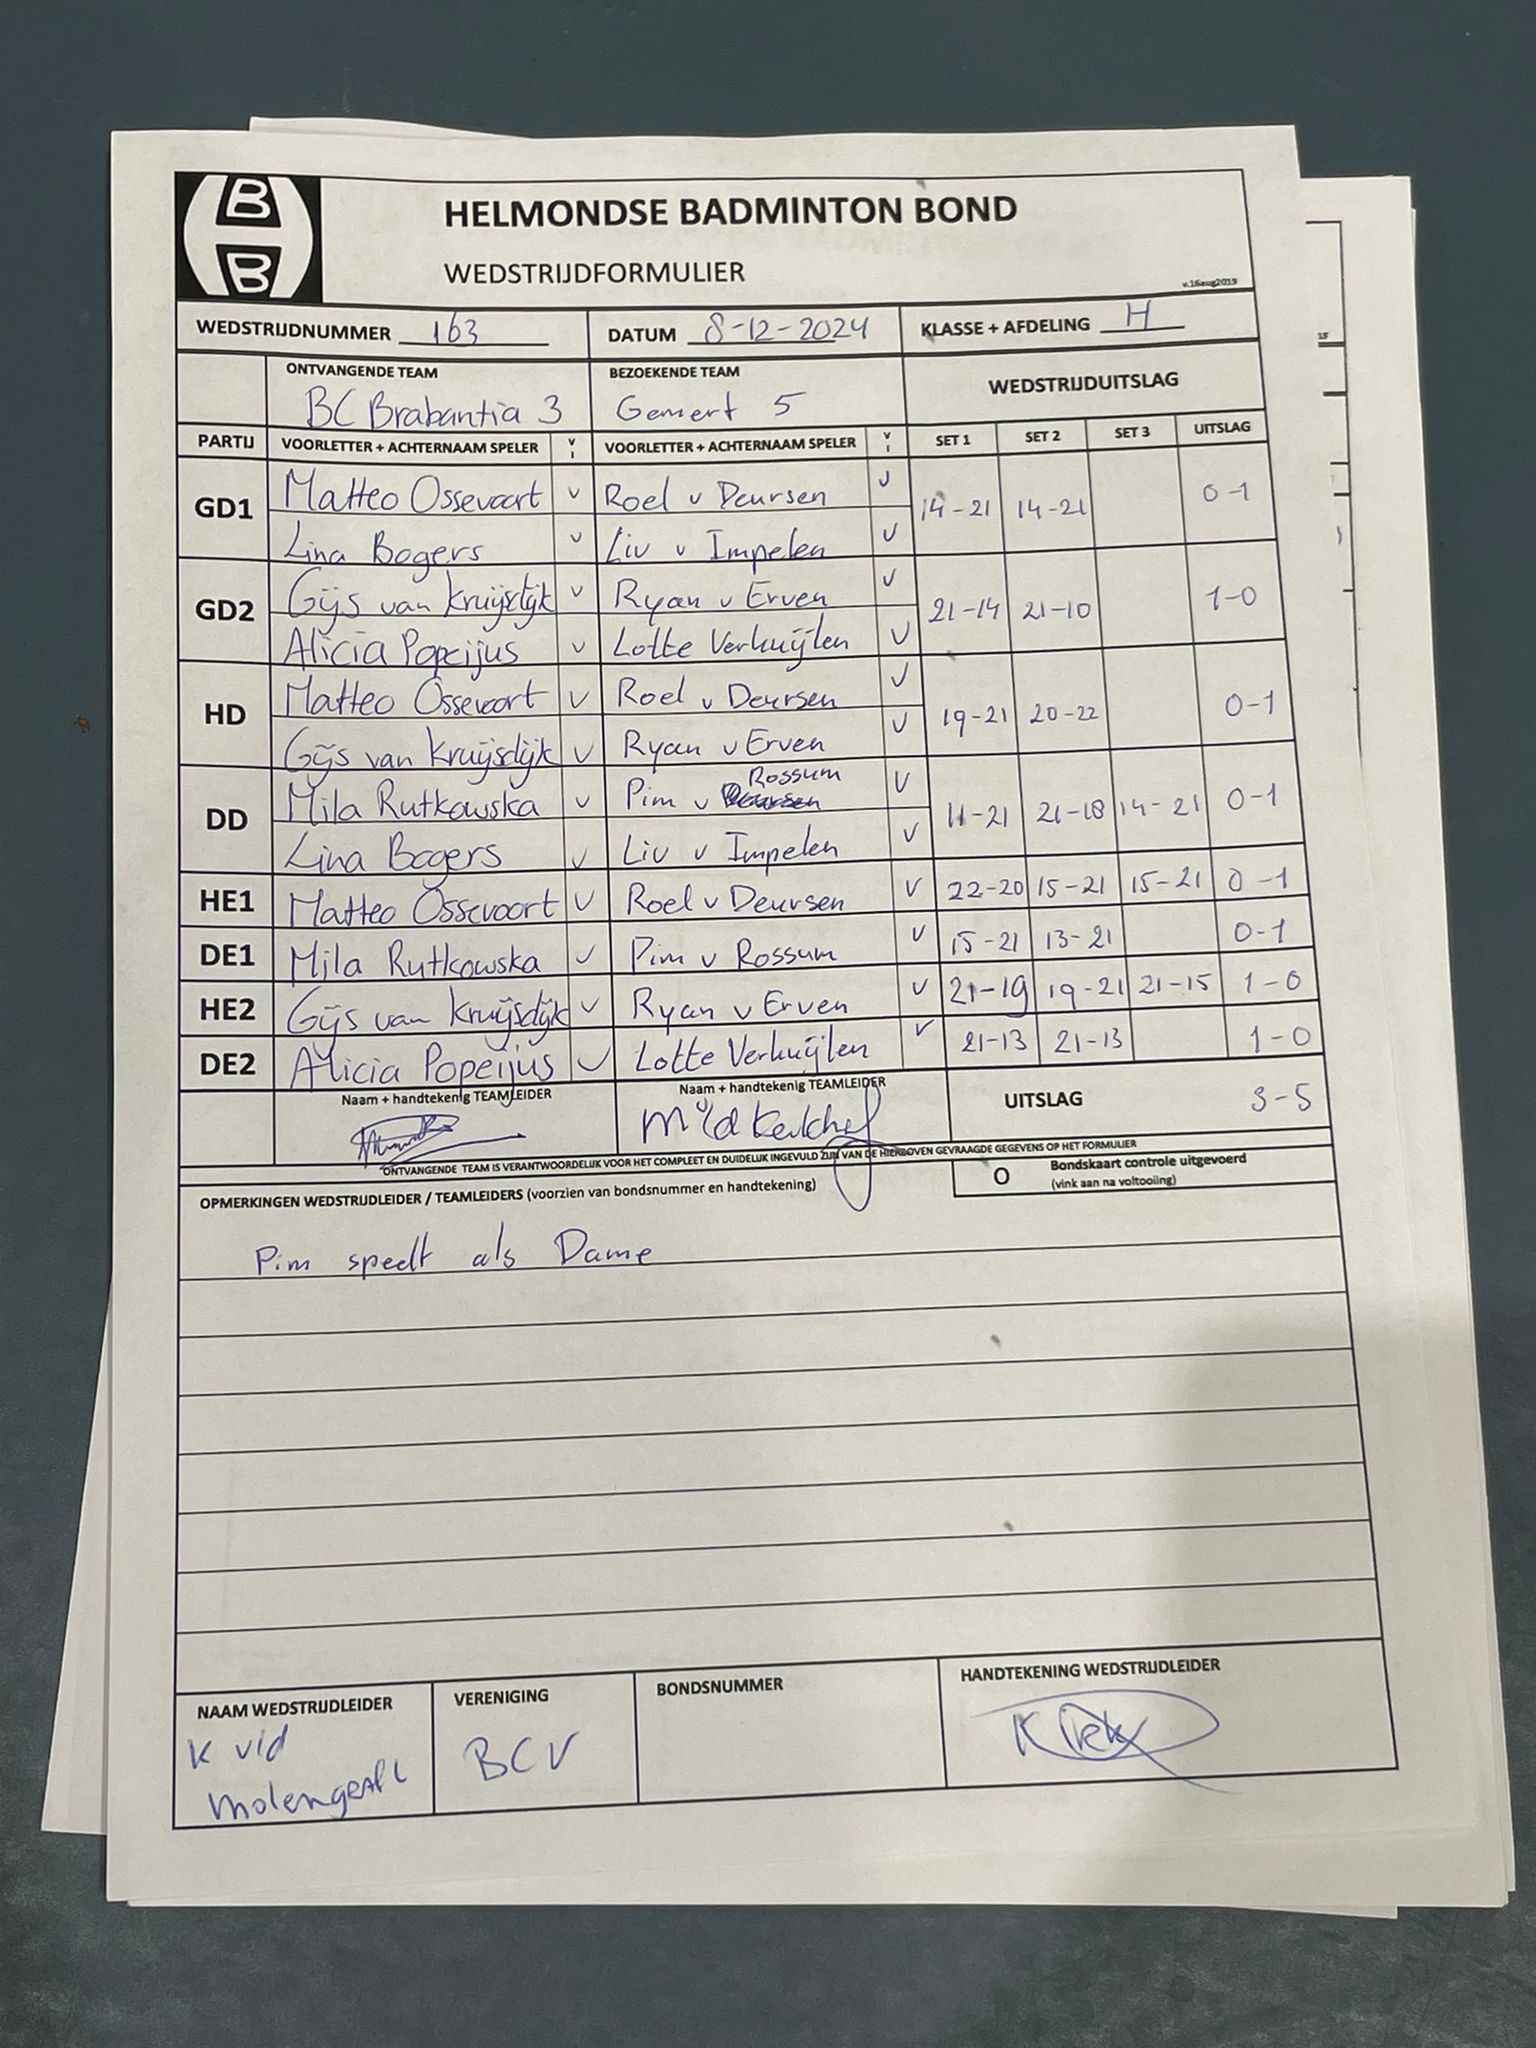 B
B
HELMONDSE BADMINTON BOND
WEDSTRIJDFORMULIER
v.16aug2019
WEDSTRIJDNUMMER 163 DATUM 8-12-2024 KLASSE + AFDELING H
ONTVANGENDE TEAM BEZOEKENDE TEAM WEDSTRIJDUITSLAG
BC Brabantia 3 Gemert 5
PARTIJ VOORLETTER + ACHTERNAAM SPELER V I VOORLETTER + ACHTERNAAM SPELER V I SET 1 SET 2 SET 3 UITSLAG
GD1 Matteo Ossevoort v Roel v Deursen v 14-21 14-21 0-1
Lina Bogers v Liv v Impelen v
GD2 Gijs van Kruijsdijk v Ryan v Erven v 21-14 21-10 1-0
Alicia Popeijus v Lotte Verkuijlen v
HD Matteo Ossevoort v Roel v Deursen v 19-21 20-22 0-1
Gijs van Kruijsdijk v Ryan v Erven v
DD Mila Rutkowska v Pim v Rossum v 11-21 21-18 14-21 0-1
Lina Bogers v Liv v Impelen v
HE1 Matteo Ossevoort v Roel v Deursen v 22-20 15-21 15-21 0-1
DE1 Mila Rutkowska v Pim v Rossum v 15-21 13-21 0-1
HE2 Gijs van Kruijsdijk v Ryan v Erven v 21-19 19-21 21-15 1-0
DE2 Alicia Popeijus v Lotte Verkuijlen v 21-13 21-13 1-0
Naam + handtekenig TEAMLEIDER Naam + handtekenig TEAMLEIDER UITSLAG 3-5
ONTVANGENDE TEAM IS VERANTWOORDELIJK VOOR HET COMPLEET EN DUIDELIJK INGEVULD ZIJN VAN DE HIERBOVEN GEVRAAGDE GEGEVENS OP HET FORMULIER
OPMERKINGEN WEDSTRIJDLEIDER / TEAMLEIDERS (voorzien van bondsnummer en handtekening) O Bondskaart controle uitgevoerd
(vink aan na voltooiing)
Pim speelt als Dame
NAAM WEDSTRIJDLEIDER VERENIGING BONDSNUMMER HANDTEKENING WEDSTRIJDLEIDER
K v/d BCV